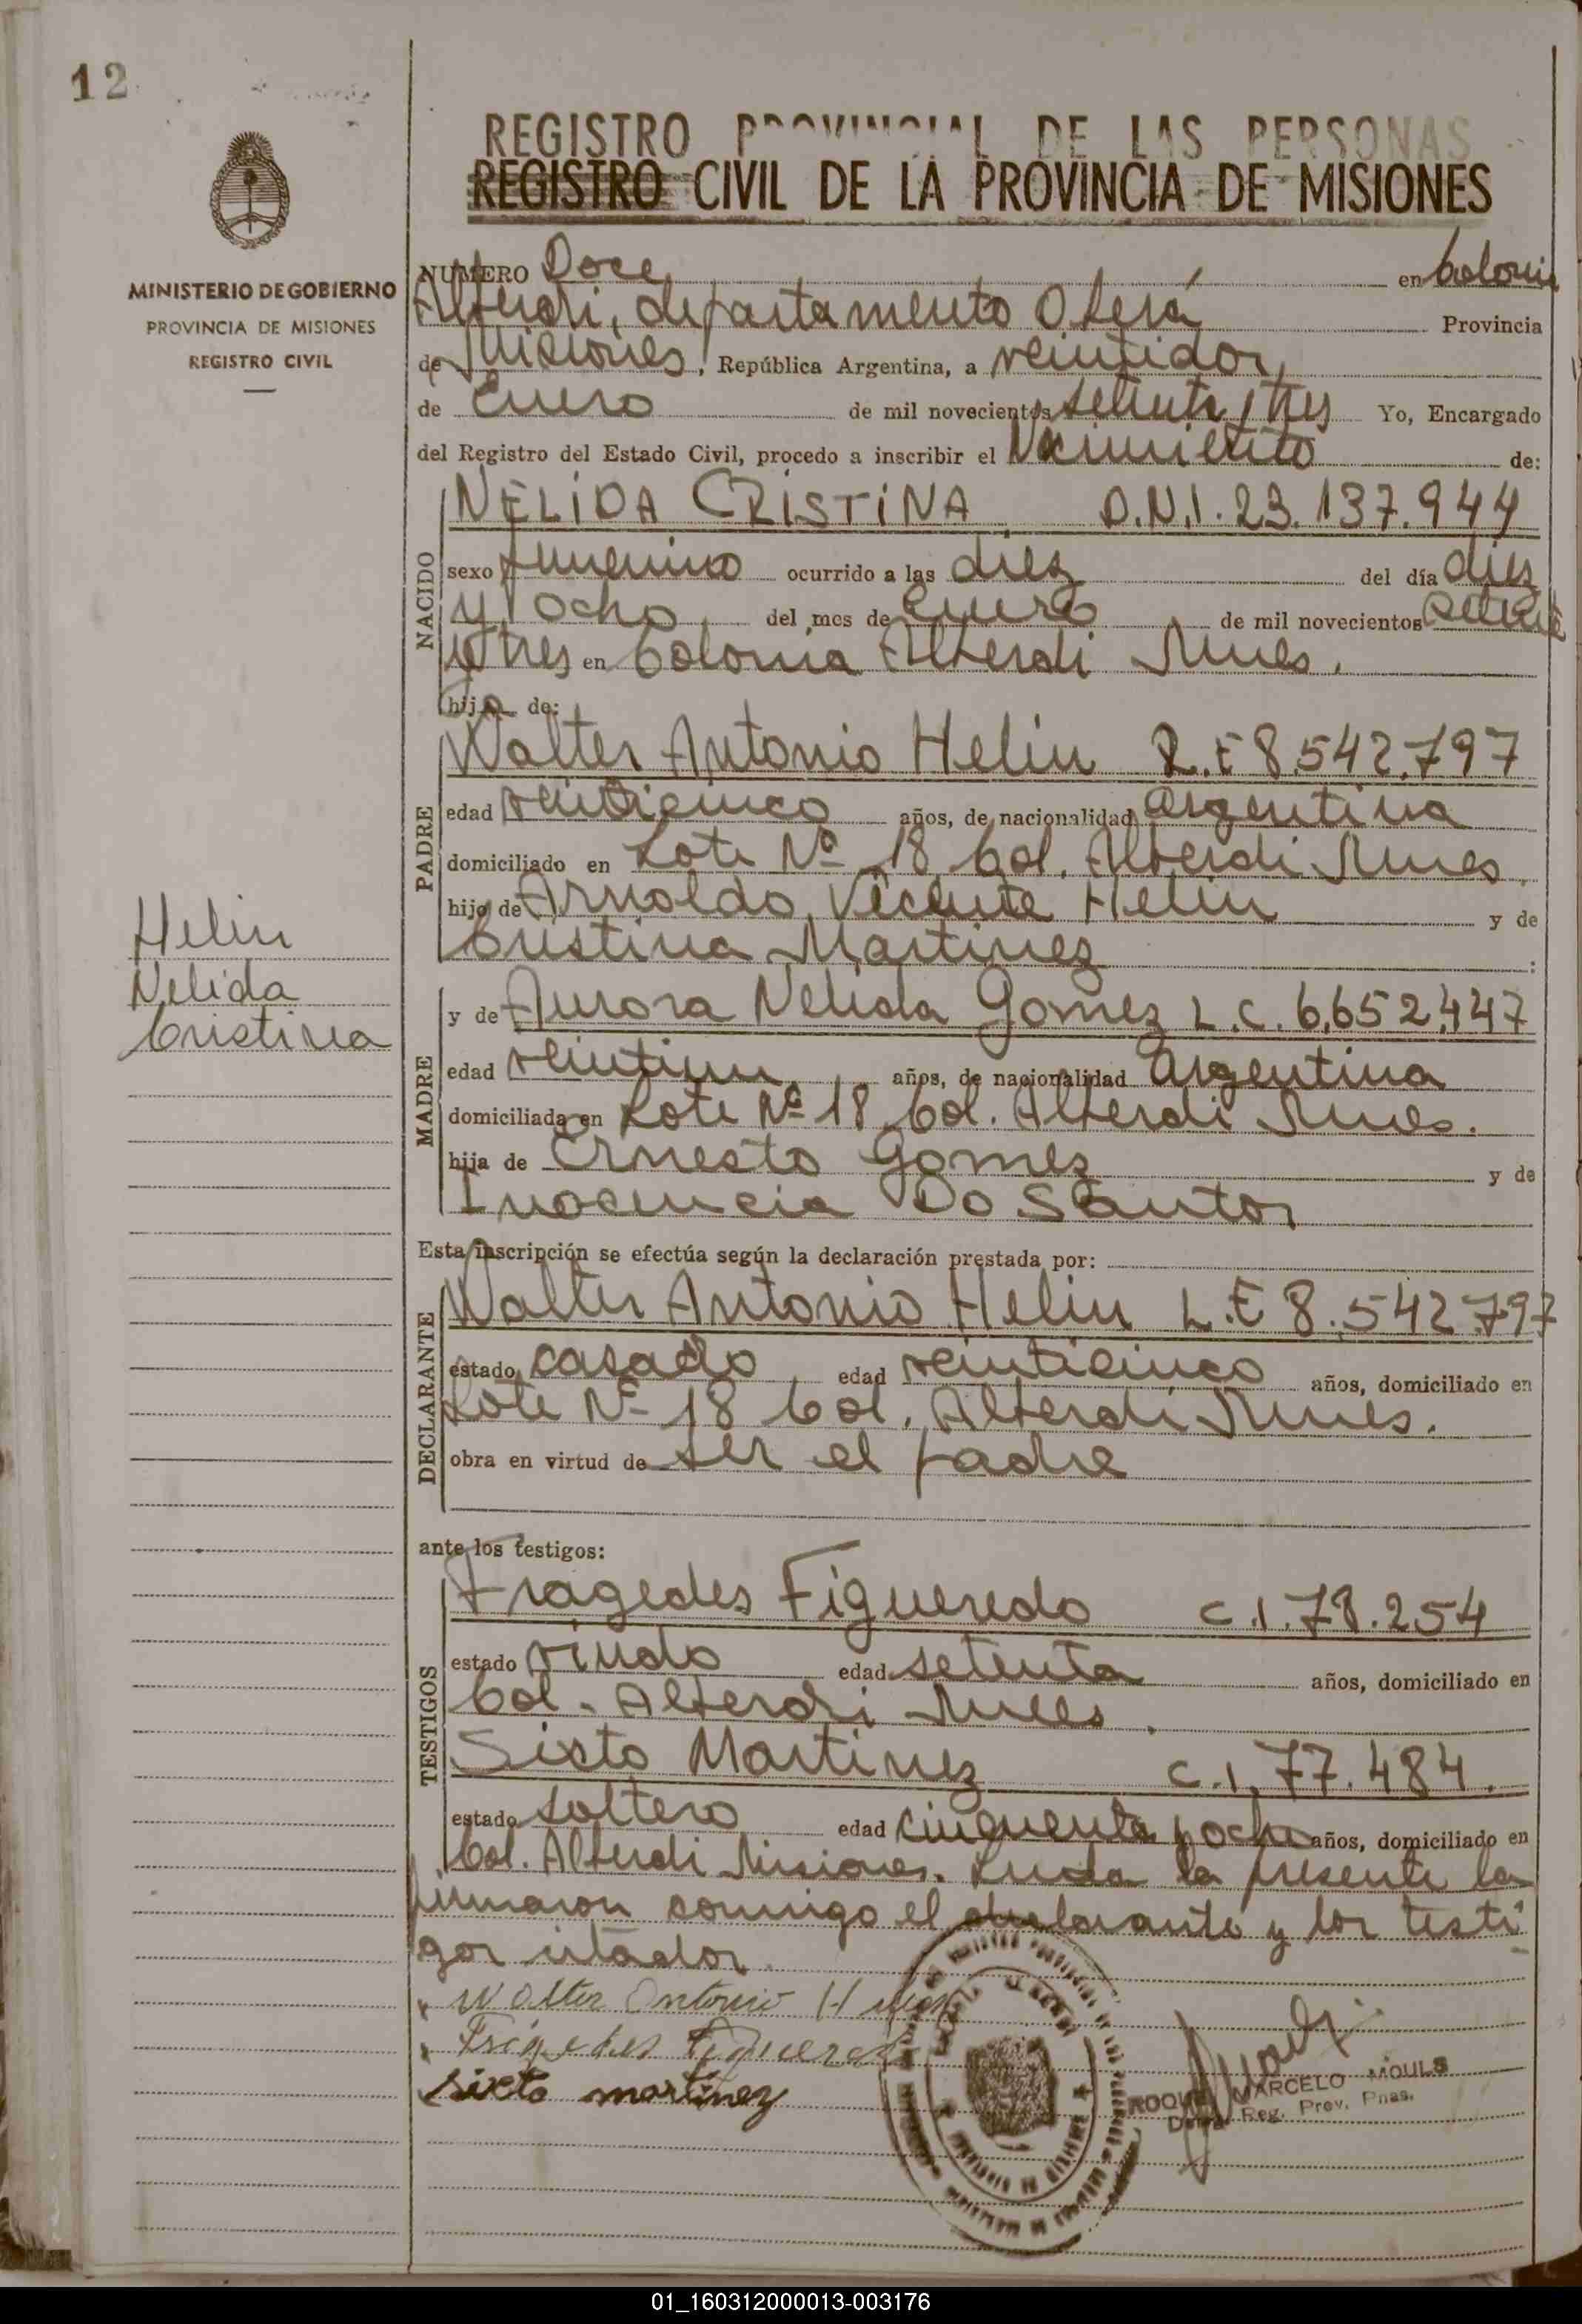 12
REGISTRO PROVINCIAL DE LAS PERSONAS
REGISTRO CIVIL DE LA PROVINCIA DE MISIONES
MINISTERIO DE GOBIERNO
PROVINCIA DE MISIONES
REGISTRO CIVIL
NUMERO Doce en Colonia
Alberdi, departamento Oberá Provincia
de Misiones, República Argentina, a veintidos
de Enero de mil novecientos setenta y tres Yo, Encargado
del Registro del Estado Civil, procedo a inscribir el Nacimiento de:
NACIDO
NELIDA CRISTINA D.N.I. 23.137.944
sexo femenino ocurrido a las diez del día diez
y ocho del mes de Enero de mil novecientos setenta
y tres en Colonia Alberdi Mnes.
hija de:
PADRE
Walter Antonio Helin L.E 8.542.797
edad veinticinco años, de nacionalidad argentina
domiciliado en Lote Nº 18 Col. Alberdi Mnes.
hijo de Arnoldo Vicente Helin y de
Cristina Martinez :
Helin
Nelida
Cristina
MADRE
y de Aurora Nelida Gomez L.C. 6.652.447
edad veintiun años, de nacionalidad argentina
domiciliada en Lote Nº 18 Col. Alberdi Mnes.
hija de Ernesto Gomez y de
Inocencia Do Santos
Esta inscripción se efectúa según la declaración prestada por:
DECLARANTE
Walter Antonio Helin L.E 8.542.797
estado casado edad veinticinco años, domiciliado en
Lote Nº 18 Col. Alberdi Mnes.
obra en virtud de ser el padre
ante los testigos:
TESTIGOS
Fragedes Figueredo C.I. 78.254
estado viudo edad setenta años, domiciliado en
Col. Alberdi Mnes.
Sixto Martinez C.I. 77.484.
estado soltero edad cincuenta y ocho años, domiciliado en
Col. Alberdi Misiones. Leida la presente la
firmaron conmigo el declarante y los testi
gos citados.
Walter Antonio Helin
Figueredo
sixto martinez
ROQUE MARCELO MOULS
Reg. Prov. Pnas.
01_160312000013-003176